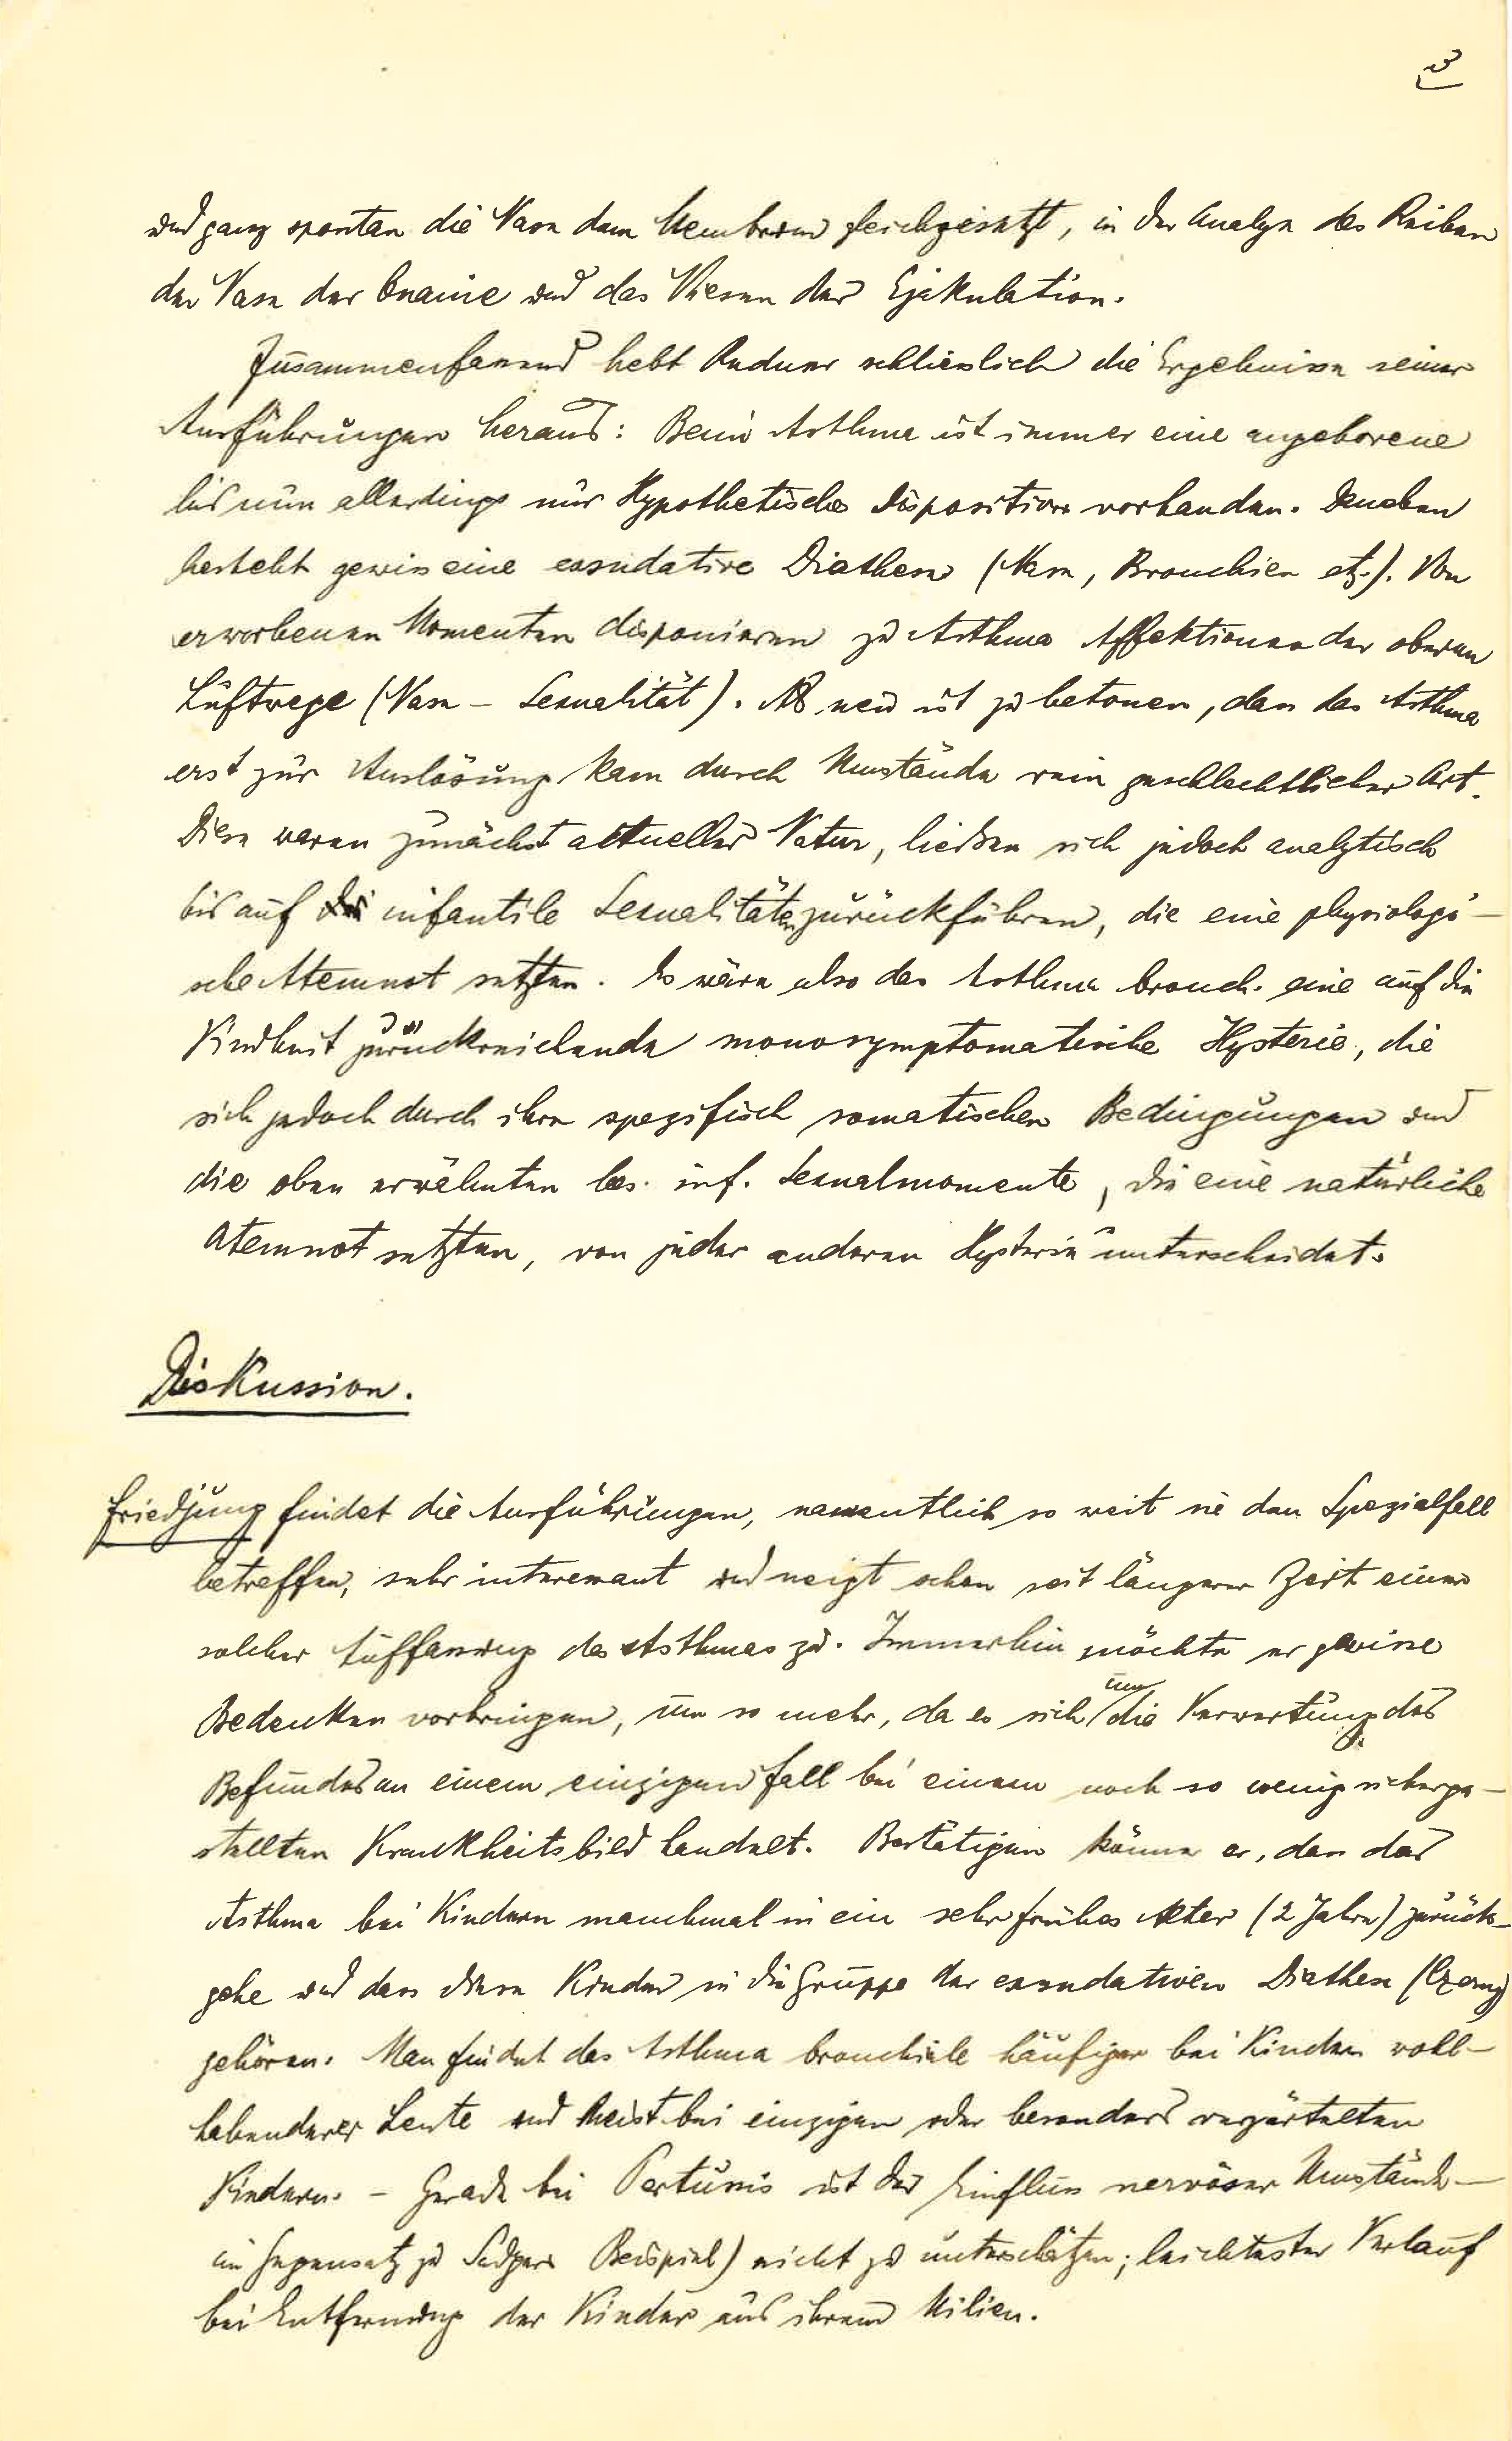 3
und ganz spontan die Nase dem Membrum gleichgesetzt, in der Analyse das Reiben
der Nase der Onanie und das Niesen der Ejakulation.
Zusammenfassend hebt Redner schliesslich die Ergebnisse seiner
Ausführungen heraus: Beim Asthma ist immer eine angeborene
bis nun allerdings nur Hypothetische Disposition vorhanden. Daneben
besteht gewiss eine exsudative Diathese (Nase, Bronchien etz.). Von
erworbenen Momenten disponieren zu Asthma Affektionen der oberen
Luftwege (Nase – Sexualität). Als neu ist zu betonen, dass das Asthma
erst zur Auslösung kam durch Umstände rein geschlechtlicher Art.
Diese waren zunächst aktueller Natur, liessen sich jedoch analytisch
bis auf infantile Sexualitäten zurückführen, die eine physiologi-
sche Atemnot setzten. Es wäre also das Asthma bronch. eine auf die
Kindheit zurückreichende monosymptomatische Hysterie, die
sich jedoch durch ihre spezifisch somatischen Bedingungen und
die oben erwähnten bes. inf. Sexualmomente, die eine natürliche
Atemnot setzten, von jeder anderen Hysterie unterscheidet.
Diskussion.
Friedjung findet die Ausführungen, namentlich so weit sie den Spezialfall
betreffen, sehr interessant und neigt schon seit längerer Zeit einer
solcher Auffassung des Asthmas zu. Immerhin möchte er gewisse
Bedenken vorbringen, um so mehr, da es sich um die Verwertung des
Befundes an einem einzigen Fall bei einem noch so wenig sicherge-
stellten Krankheitsbild handelt. Bestätigen könne er, dass das
Asthma bei Kindern manchmal in ein sehr frühes Alter (2 Jahre) zurück-
gehe und dass diese Kinder in die Gruppe der exsudativen Diathese (Czerny)
gehören. Man findet das Asthma bronchiale häufiger bei Kindern wohl-
habenderer Leute und meist bei einzigen oder besonders verzärtelten
Kindern. – Gerade bei Pertussis ist der Einfluss nervöser Umstände –
im Gegensatz zu Sadgers Beispiel) nicht zu unterschätzen; leichtester Verlauf
bei Entfernung der Kinder aus ihrem Milieu.